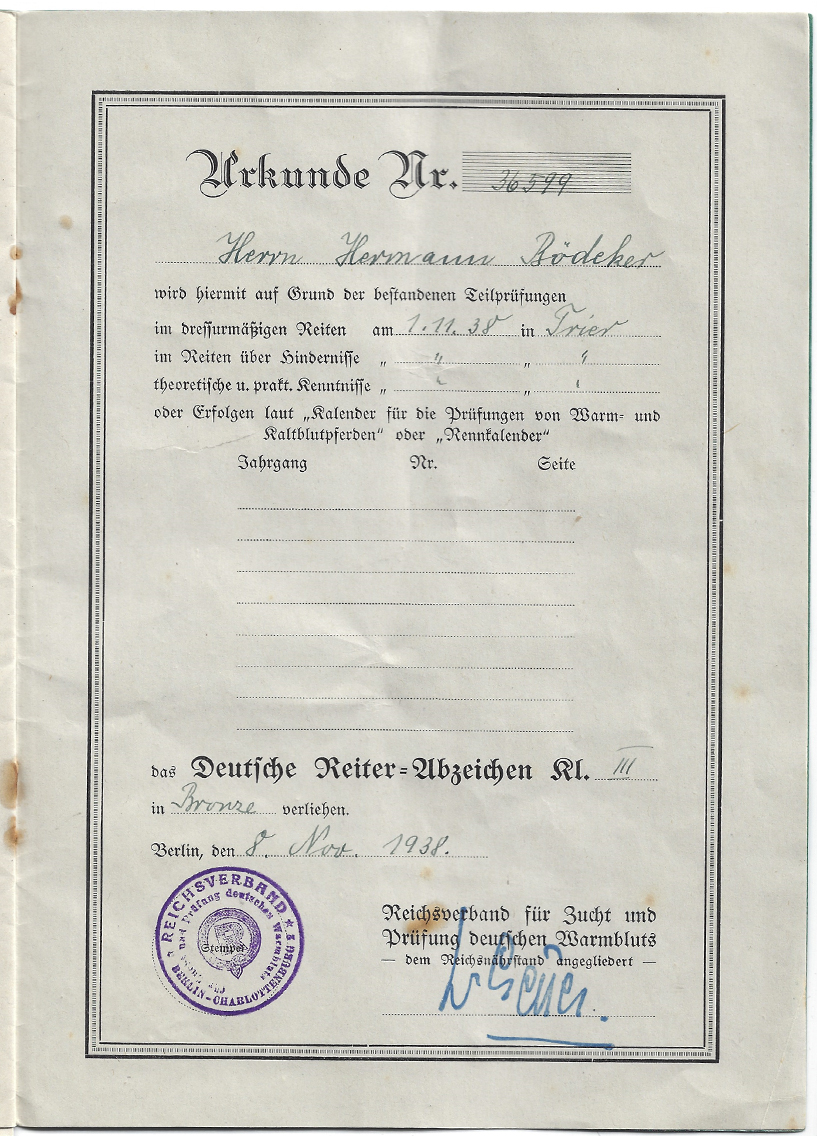 Urkunde Nr. 36599
Herrn Hermann Bödeker
wird hiermit auf Grund der bestandenen Teilprüfungen
im dressurmäßigen Reiten am 1.11.38 in Trier
im Reiten über Hindernisse „ " „ "
theoretische u. prakt. Kenntnisse „ " „ "
oder Erfolgen laut „Kalender für die Prüfungen von Warm- und
Kaltblutpferden“ oder „Rennkalender“
Jahrgang Nr. Seite
das Deutsche Reiter-Abzeichen Kl. III
in Bronze verliehen.
Berlin, den 8. Nov. 1938.
REICHSVERBAND
und Prüfung deutschen Warmbluts
Stempel
BERLIN-CHARLOTTENBURG
Reichsverband für Zucht und
Prüfung deutschen Warmbluts
— dem Reichsnährstand angegliedert —